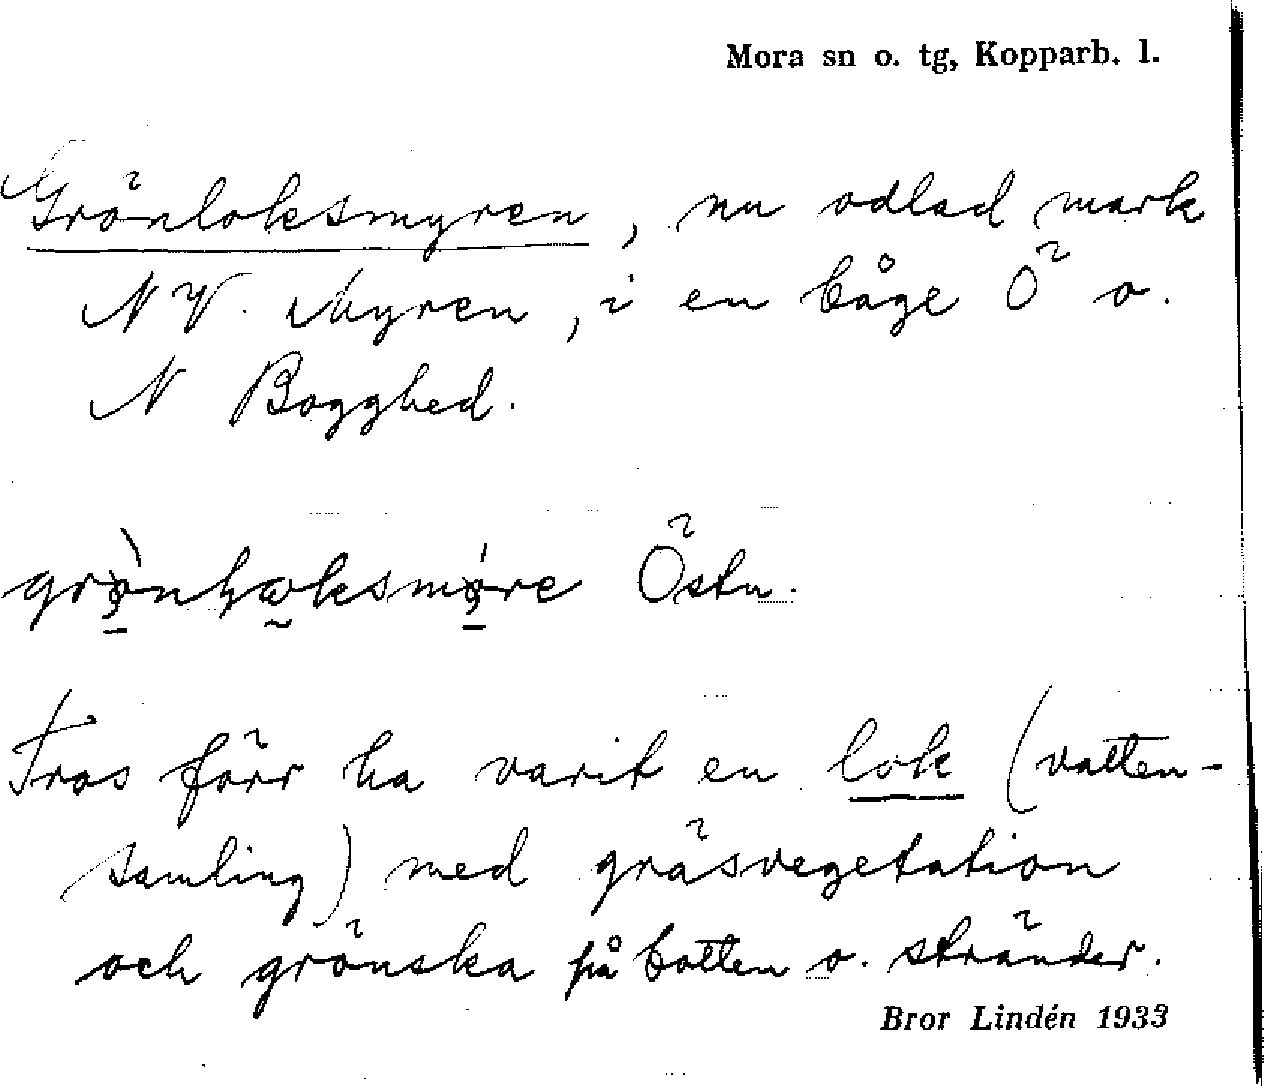 Mora sn o. tg, Kopparb. l.
Grönloksmyren, nu odlad mark
NV. Myren, i en båge Ö o.
N Bogghed.
Östn.
Tros förr ha varit en lok (vatten-
samling) med gräsvegetation
och grönska på botten o. stränder.
Bror Lindén 1933